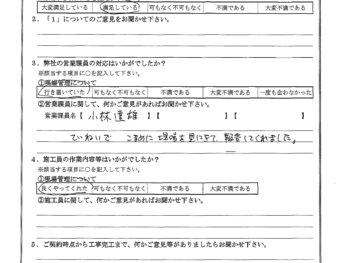 大変満足している 満足している 可もなく不可もなく 不満である 大変不満である
2．「1」についてのご意見をお聞かせ下さい。
3．当社の営業職員の対応はいかがでしたか？
※該当する項目に○を記入して下さい。
①現場管理について
行き届いていた 可もなく不可もなく 不満である 大変不満である 一度も会わなかった
②営業職員に関して、何かご意見があればお聞かせ下さい。
営業職員名【 小林達雄 】【 】【 】
ていねいで こまめに 現場を見に来て 報告してくれました。
4．施工員の作業内容等はいかがでしたか？
※該当する項目に○を記入して下さい。
①現場管理について
良くやってくれた 可もなく不可もなく 不満である 大変不満である
②施工員に関して、何かご意見があればお聞かせ下さい。
5．ご契約時点から工事完工まで、何かご意見等がありましたらお聞かせ下さい。